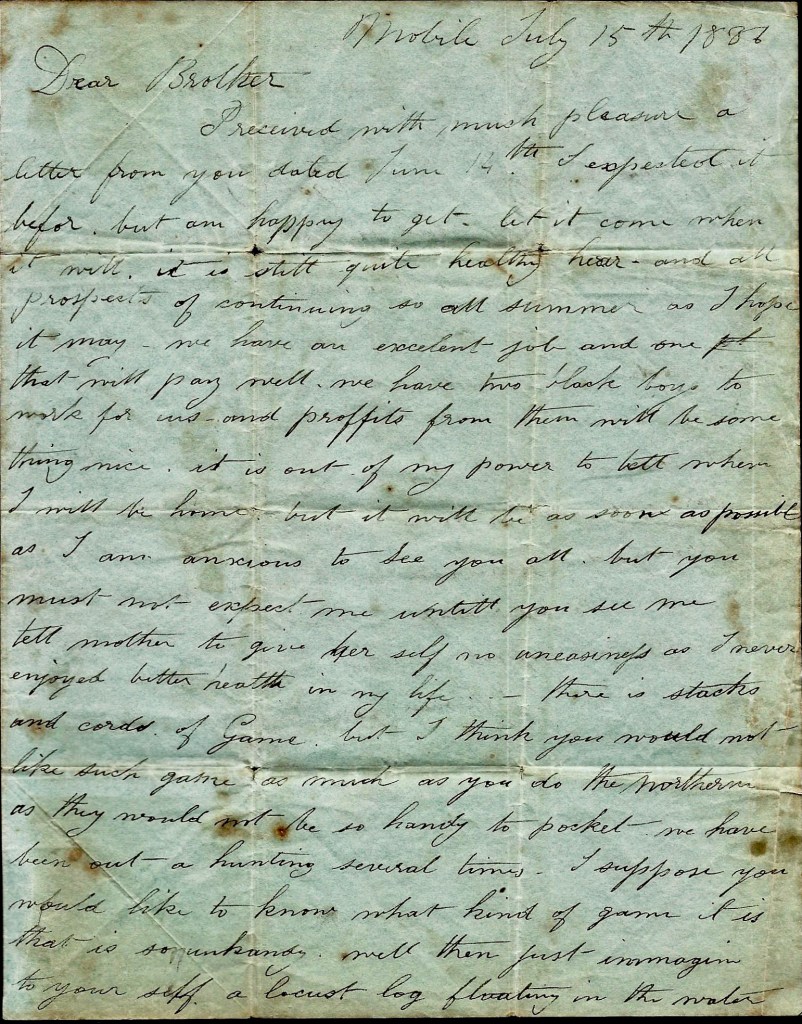 Mobile July 15th 1886
Dear Brother
I received with much pleasure a
letter from you dated June 14th. I expected it
befor. but am happy to get - let it come when
it will. it is still quite healthy hear - and all
prospects of continuing so all summer as I hope
it may - we have an excelent job and one
that will pay well. we have two black boys to
work for us - and proffits from them will be some
thing nice. it is out of my power to tell when
I will be home. but it will be as soon as possible
as I am anxious to see you all. but you
must not expect me untill you see me
tell mother to give her self no uneasiness as I never
enjoyed better health in my life. . - there is stacks
and cords. of Game. but I think you would not
like such game as much as you do the Northern
as they would not be so handy to pocket - we have
been out a hunting several times. I suppose you
would like to know what kind of game it is
that is so unhandy. well then just immagin
to your self a locust log floating in the water